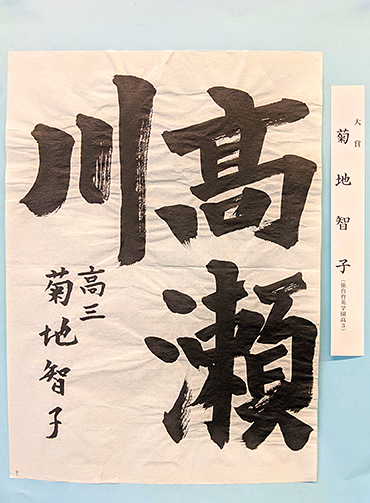 高瀬
川
高三
菊地智子
大賞
菊地智子
(仙台育英学園高3)